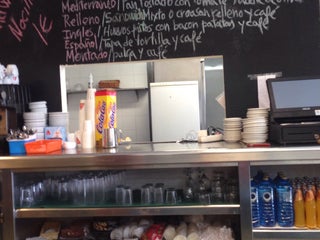 Mediterraneo / Pan tostado con tomate
Relleno / Sandwich Mixto o croasan relleno y café
Ingles / Huevos fritos con bacon patatas y café
Español / Tapa de tortilla y café
Mentado / pulga y café
1€
ColaCao